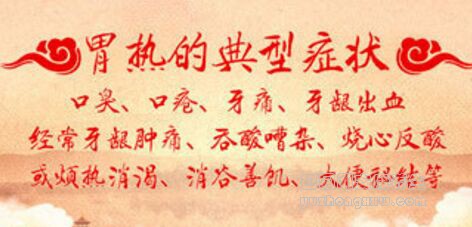 胃热的典型症状
口臭、口疮、牙痛、牙龈出血
经常牙龈肿痛、吞酸嘈杂、烧心反酸
或烦热消渴、消谷善饥、大便秘结等